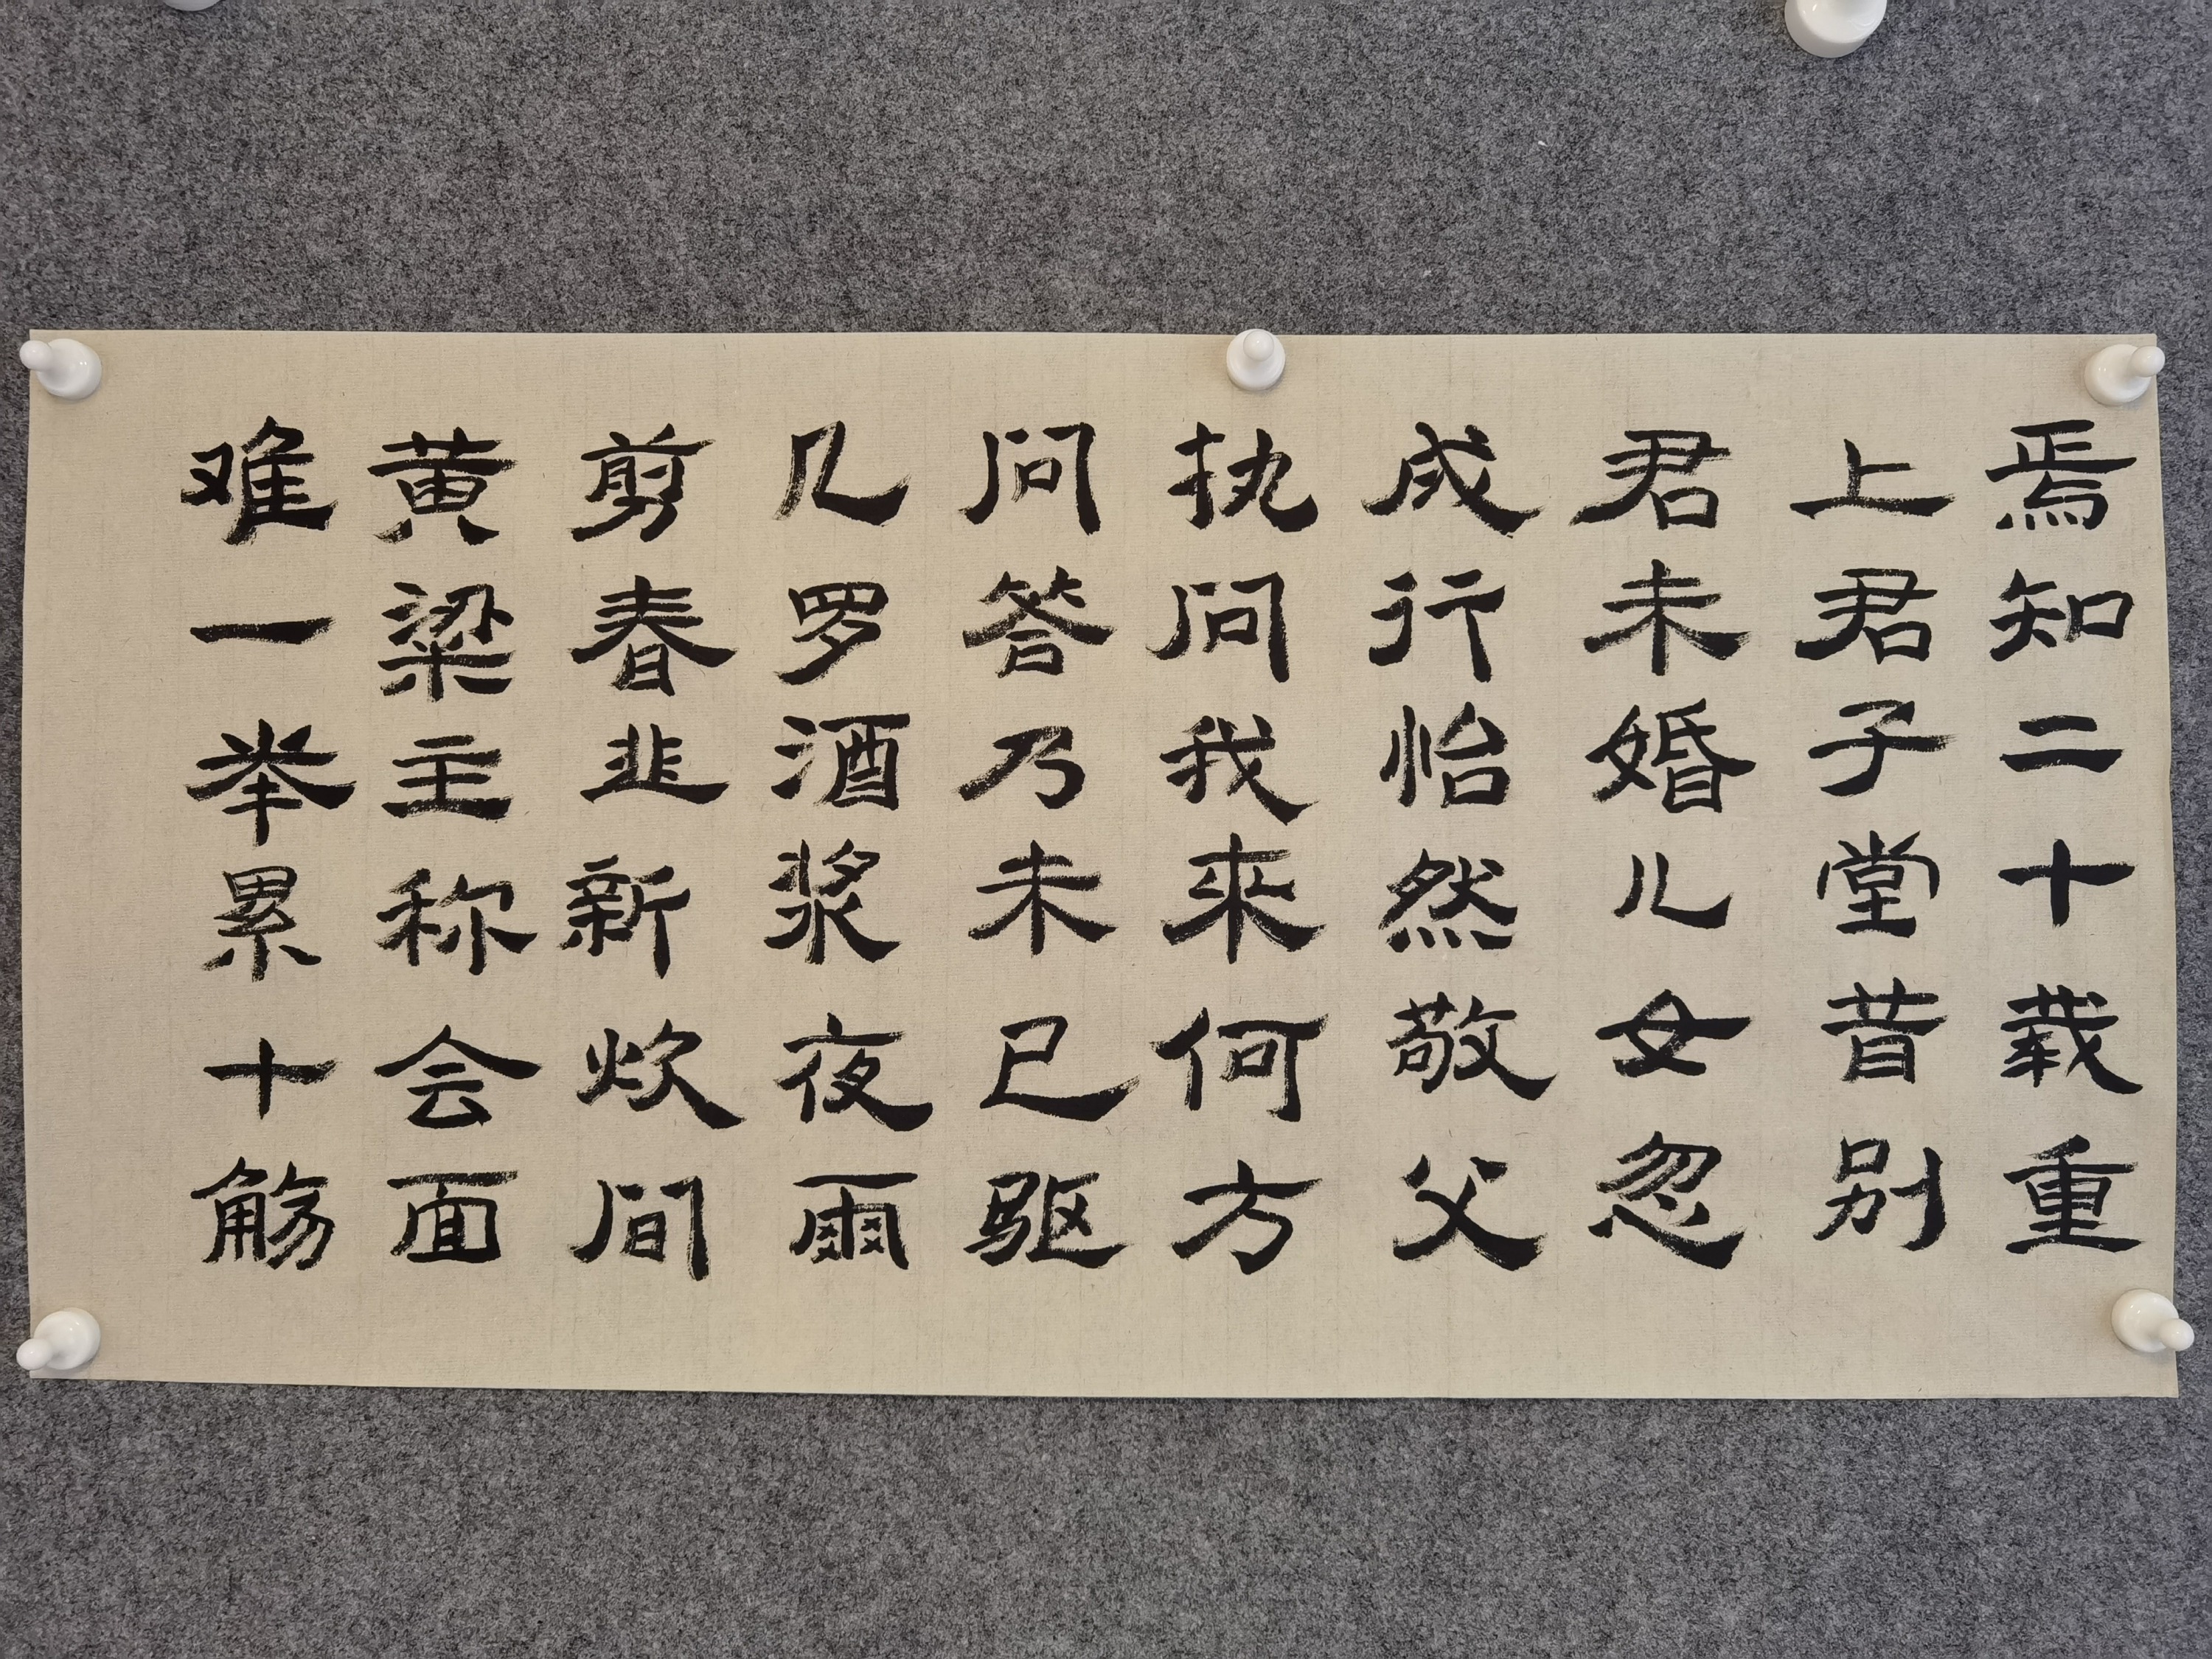 焉知二十载重
上君子堂昔别
君未婚儿女忽
成行怡然敬父
执问我来何方
问答乃未已驱
儿罗酒浆夜雨
剪春韭新炊间
黄粱主称会面
难一举累十觞